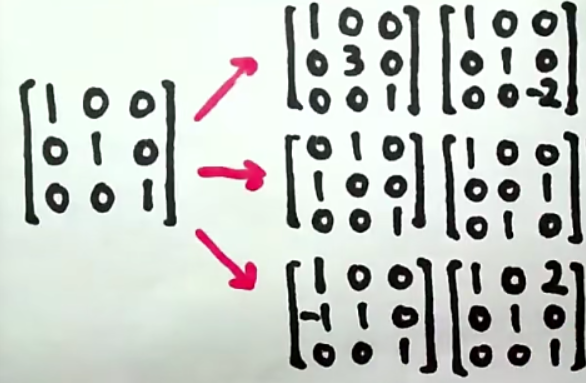 1 0 0
0 1 0
0 0 1
1 0 0
0 3 0
0 0 1
1 0 0
0 1 0
0 0 -2
0 1 0
1 0 0
0 0 1
1 0 0
0 0 1
0 1 0
1 0 0
-1 1 0
0 0 1
1 0 2
0 1 0
0 0 1